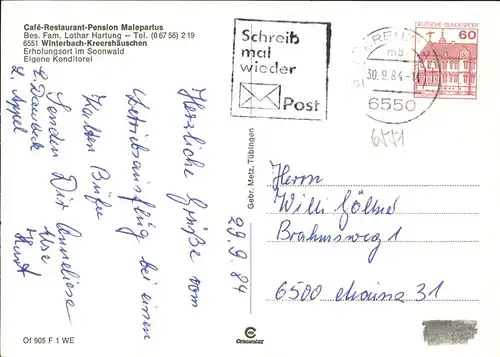 Café-Restaurant-Pension Malepartus
Bes. Fam. Lothar Hartung – Tel. (0 67 56) 219
6551 Winterbach-Kreershäuschen
Erholungsort im Soonwald
Eigene Konditorei
Schreib
mal
wieder
Post
mb
30.9.84
6550
DEUTSCHE BUNDESPOST
60
6551
29.9.84
Herzliche Grüße vom
Betriebsausflug bei einem
kalten Büfe
Senden Dir Anneliese
Kurt
L. Appel
Gebr. Metz, Tübingen
Herrn
Willi Göllner
Brahmsweg 1
6500 Mainz 31
Of 905 F 1 WE